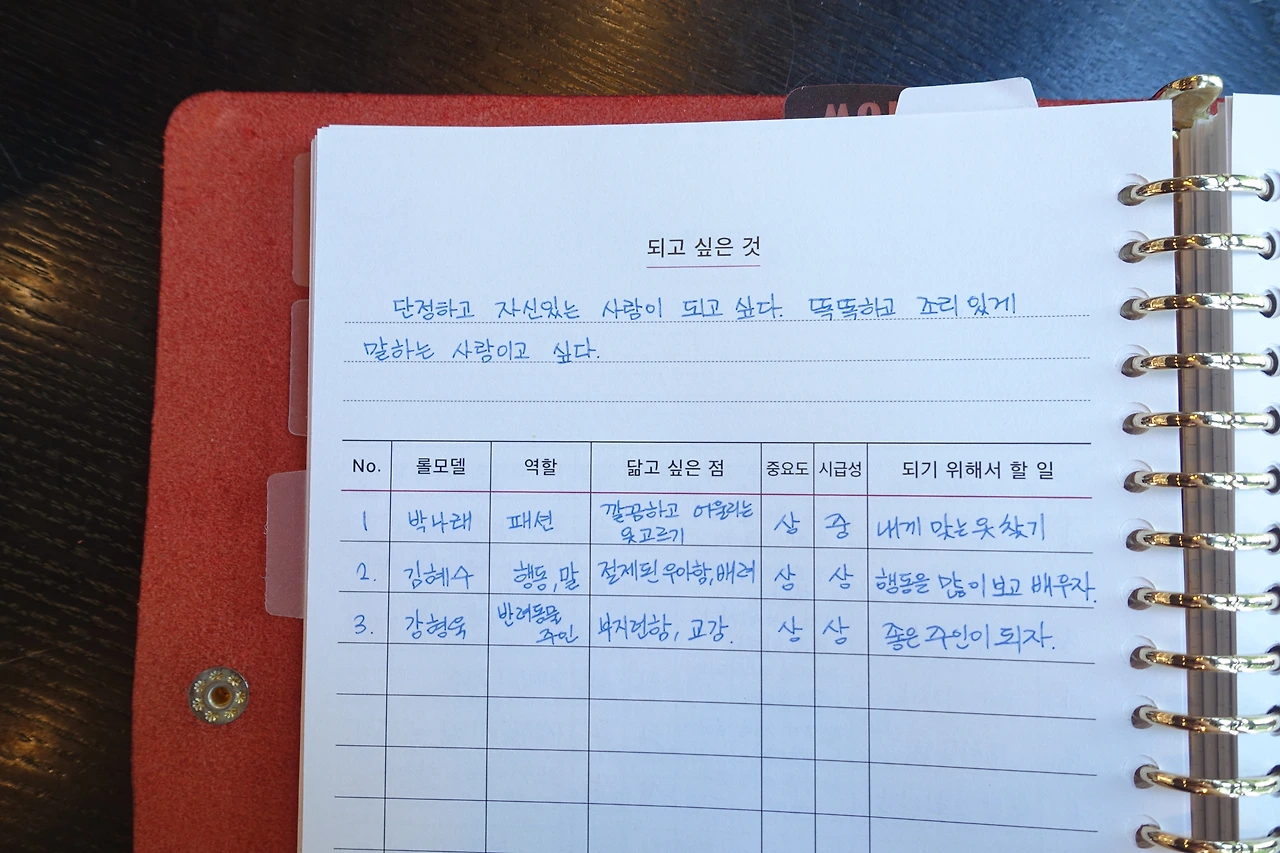 되고 싶은 것
단정하고 자신있는 사람이 되고 싶다. 똑똑하고 조리있게
말하는 사람이고 싶다.
No. 롤모델 역할 닮고 싶은 점 중요도 시급성 되기 위해서 할 일
1 박나래 패션 깔끔하고 어울리는 옷고르기 상 중 내게 맞는 옷 찾기
2. 김혜수 행동, 말 절제된 우아함, 배려 상 상 행동을 많이 보고 배우자.
3. 강형욱 반려동물 주인 부지런함, 교감. 상 상 좋은 주인이 되자.